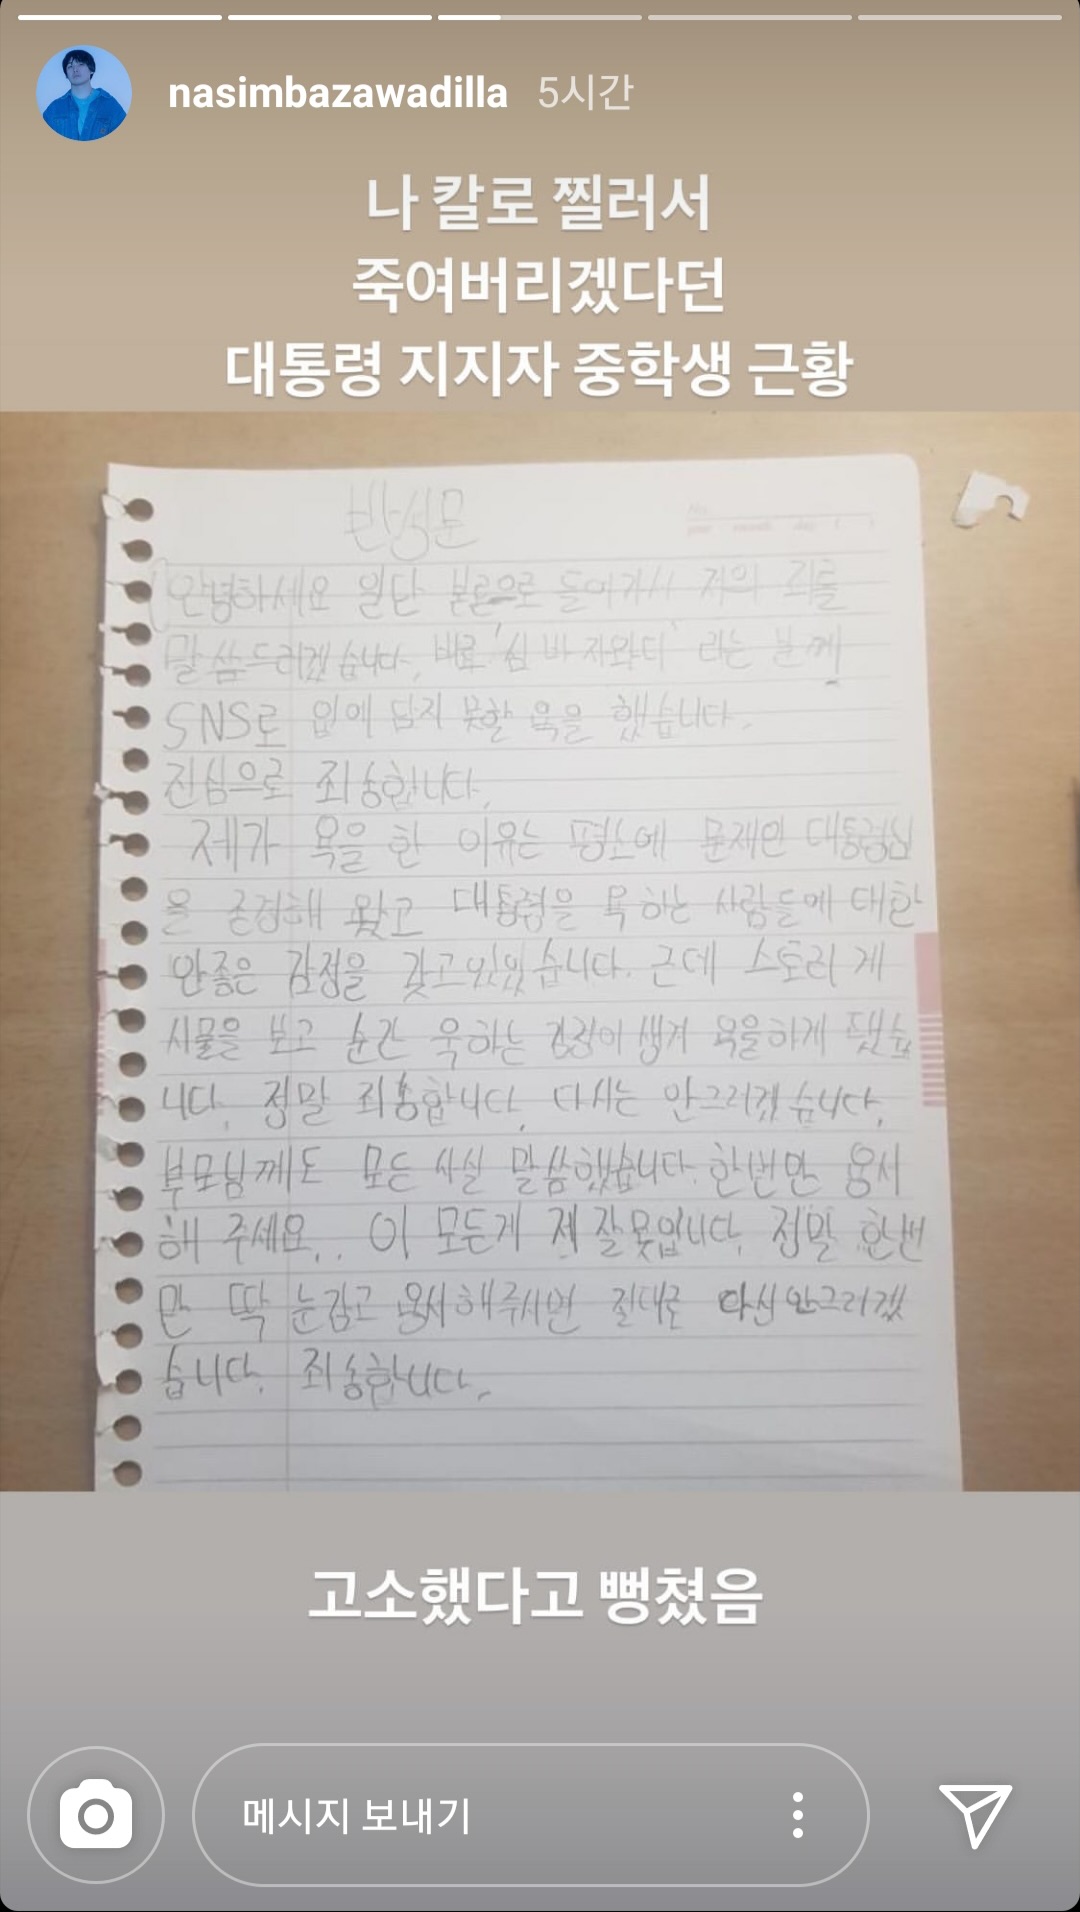 nasimbazawadilla 5시간
나 칼로 찔러서
죽여버리겠다던
대통령 지지자 중학생 근황
반성문
안녕하세요 일단 본론으로 들어가서 저의 죄를
말씀드리겠습니다. 바로 '심바자와디' 라는 분께
SNS로 입에 담지 못할 욕을 했습니다.
진심으로 죄송합니다.
제가 욕을 한 이유는 평소에 문재인 대통령님
을 존경해 왔고 대통령을 욕하는 사람들에 대한
안좋은 감정을 갖고있었습니다. 근데 스토리 게
시물을 보고 순간 욱하는 감정이 생겨 욕을하게 됐습
니다. 정말 죄송합니다. 다시는 안그러겠습니다.
부모님께도 모든 사실 말씀했습니다. 한번만 용서
해 주세요.. 이 모든게 제 잘못입니다. 정말 한번
만 딱 눈감고 용서해주시면 절대로 다신안그러겠
습니다. 죄송합니다.
고소했다고 뻥쳤음
메시지 보내기